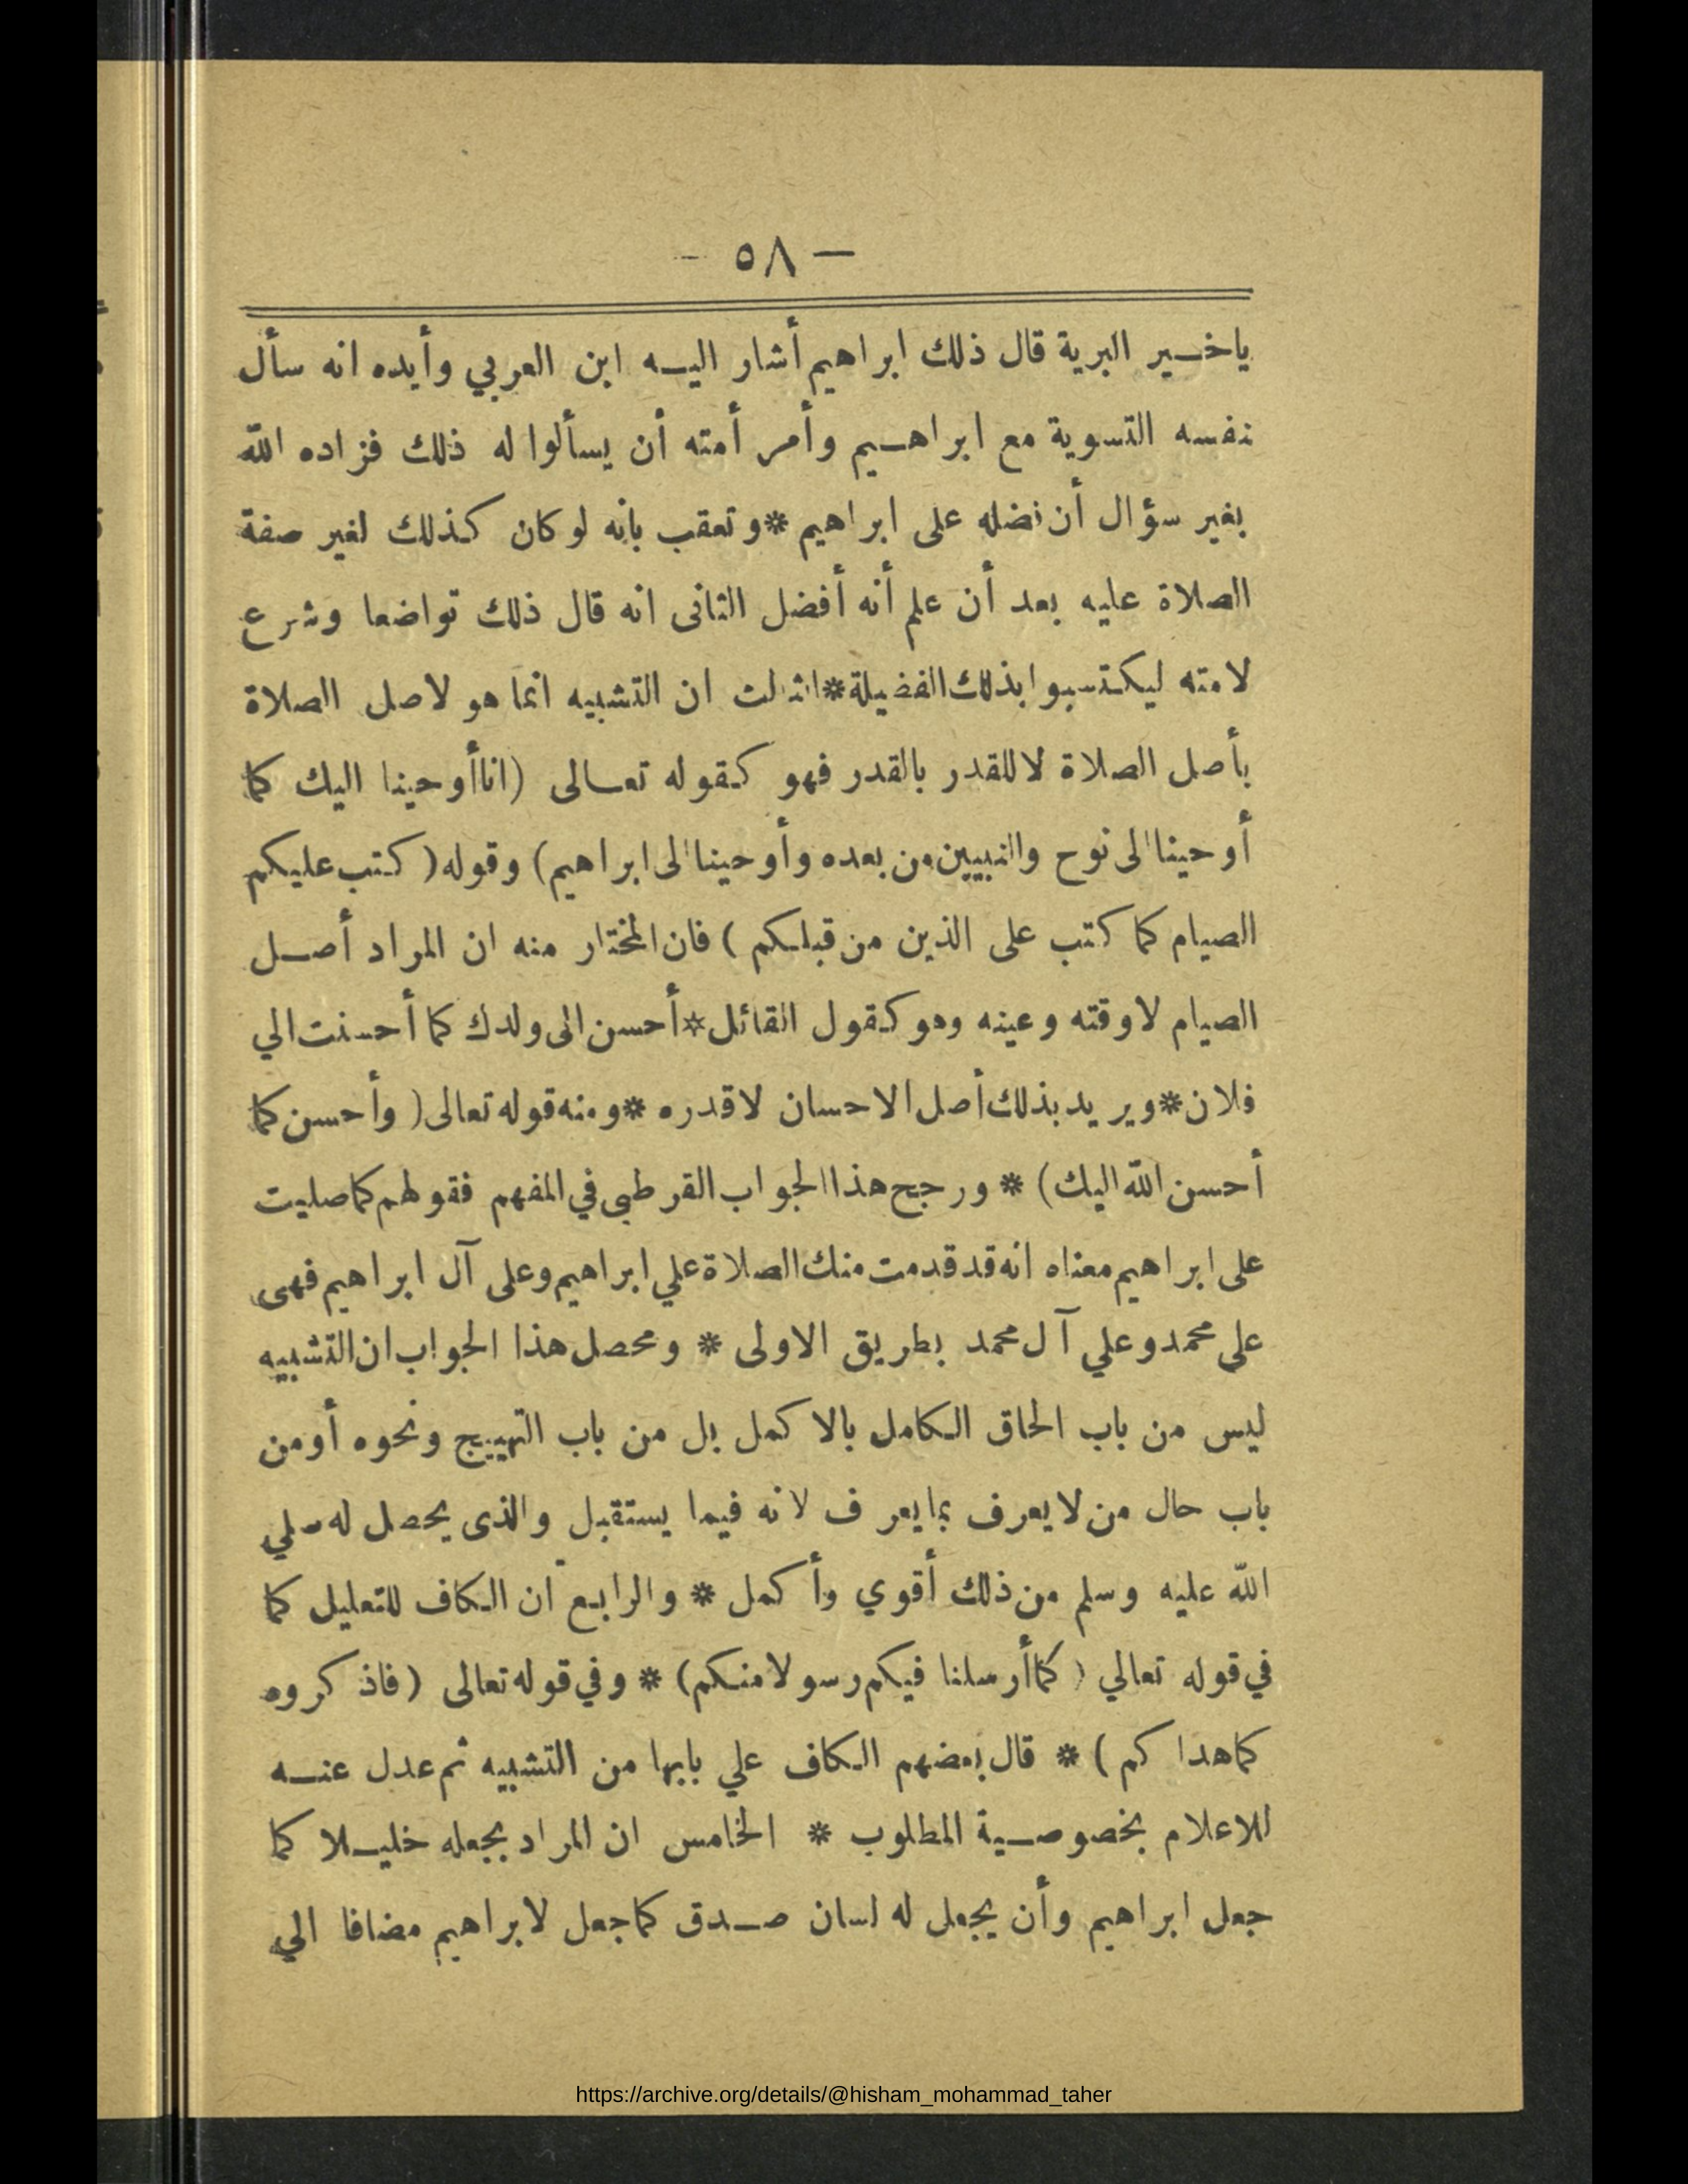 — ٥٨ —
ياخير البرية قال ذلك ابراهيم أشار اليه ابن العربي وأيده انه سأل
نفسه التسوية مع ابراهيم وأمر أمته أن يسألوا له ذلك فزاده الله
بغير سؤال أن نضله على ابراهيم * وتعقب بانه لو كان كذلك لغير صفة
الصلاة عليه بعد أن علم أنه أفضل الثانى انه قال ذلك تواضعا وشرع
لامته ليكتسبوا بذلك الفضيلة * الثالث ان التشبيه انما هو لاصل الصلاة
بأصل الصلاة لا للقدر بالقدر فهو كقوله تعالى (انا أوحينا اليك كما
أوحينا الى نوح والنبيين من بعده وأوحينا الى ابراهيم) وقوله ( كتب عليكم
الصيام كما كتب على الذين من قبلكم ) فان المختار منه ان المراد أصل
الصيام لا وقته وعينه وهو كقول القائل * أحسن الى ولدك كما أحسنت الي
فلان * ويريد بذلك أصل الاحسان لا قدره * ومنه قوله تعالى ( وأحسن كما
أحسن الله اليك) * ورجح هذا الجواب القرطبى في المفهم فقولهم كما صليت
على ابراهيم معناه انه قد قدمت منك الصلاة علي ابراهيم وعلى آل ابراهيم فهى
على محمد وعلي آل محمد بطريق الاولى * ومحصل هذا الجواب ان التشبيه
ليس من باب الحاق الكامل بالاكمل بل من باب التهييج ونحوه أو من
باب حال من لا يعرف بما يعرف لانه فيما يستقبل والذى يحصل له صلي
الله عليه وسلم من ذلك أقوي وأكمل * والرابع ان الكاف للتعليل كما
في قوله تعالي ( كما أرسلنا فيكم رسولا منكم) * وفي قوله تعالى ( فاذكروه
كما هداكم ) * قال بعضهم الكاف علي بابها من التشبيه ثم عدل عنه
للاعلام بخصوصية المطلوب * الخامس ان المراد بجعله خليلا كما
جعل ابراهيم وأن يجعل له لسان صدق كما جعل لابراهيم مضافا الي
https://archive.org/details/@hisham_mohammad_taher